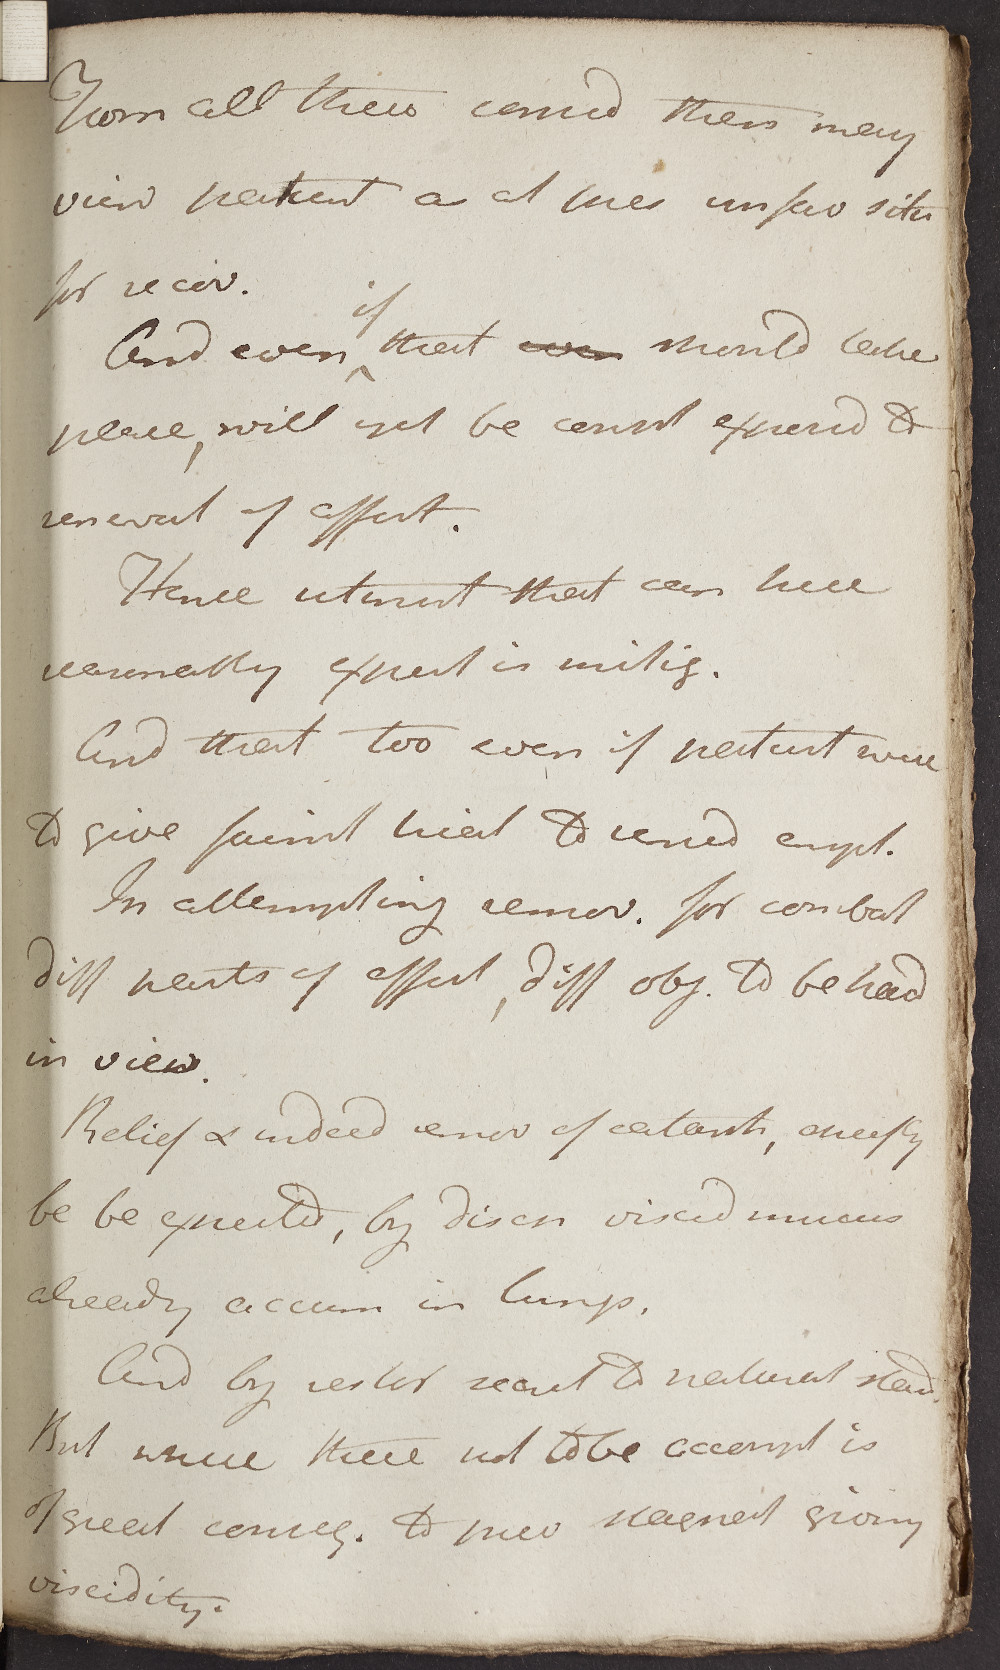 From all these consid there may
view patient as at pres unfav situ
for recov.
And even if that even should take
place, will yet be const expos'd to
renewal of affect.
Hence utmost that can here
reasonably expect is mitig.
And that too even if patient were
to give faint trial to remed empl.
In attempting remov. for combat
diff parts of affect, diff obj. to be had
in view.
Relief & indeed remov of catarrh, cheefly
be be expected, by disch viscid mucus
already accum in lungs.
And by restor secret to natural stand.
But where these not to be accompl is
of great conseq. to prev stagnat giving
viscidity.